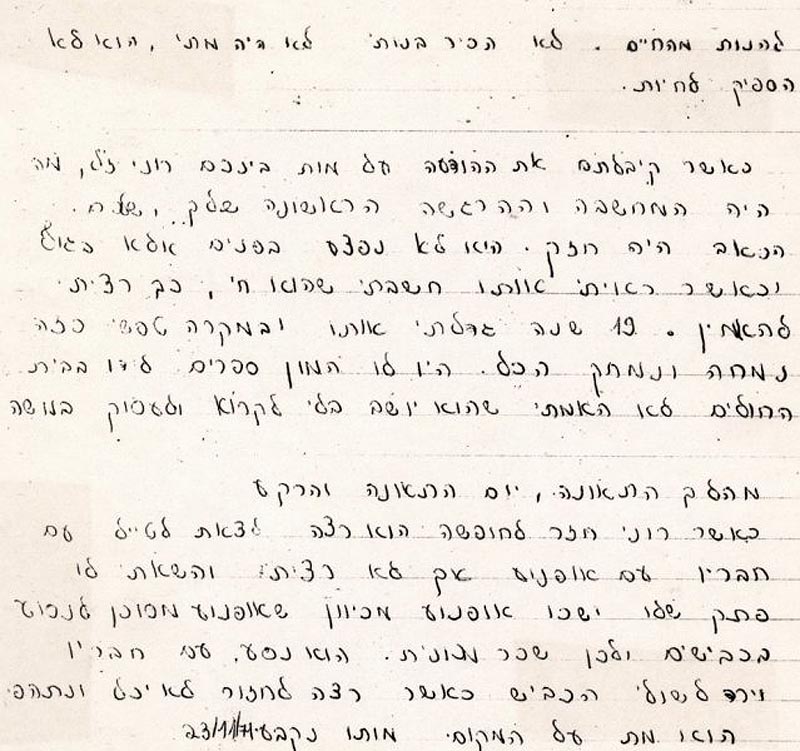 להנות מהחיים. לא הכיר בנות לא היה מתי, הוא לא
הספיק לחיות.
כאשר קיבלתם את ההודעה על מות בינכם רוני ז"ל, מה
היה המחשבה וההרגשה הראשונה שלך,
הכאב היה חזק. הוא לא נפצע בפנים אלא בגוף
וכאשר ראיתי אותו חשבתי שהוא חי, כך רציתי
להאמין. 19 שנה גדלתי אותו ובמקרה טפשי כזה
נמחה ונמחק הכל. היו לו המון ספרים לידו בבית
החולים לא האמתי שהוא יושב בלי לקרוא ולעסוק במשהו
מהלך התאונה, יום התאונה והרקע
כאשר רוני חזר לחופשה הוא רצה לצאת לטייל עם
חבריו עם אופנוע אך לא רציתי והשאתי לו
פתק שלו ישכו אופנוע מכיוון שאופנוע מסוכן לנסוע
בכבישים ולכן שכר מכונית. הוא נסע עם חבריו
וירד לשולי הכביש כאשר רצה לחזור לא יכל ונתהפך
הוא מת על המקום. מותו נקבע 23/11/71